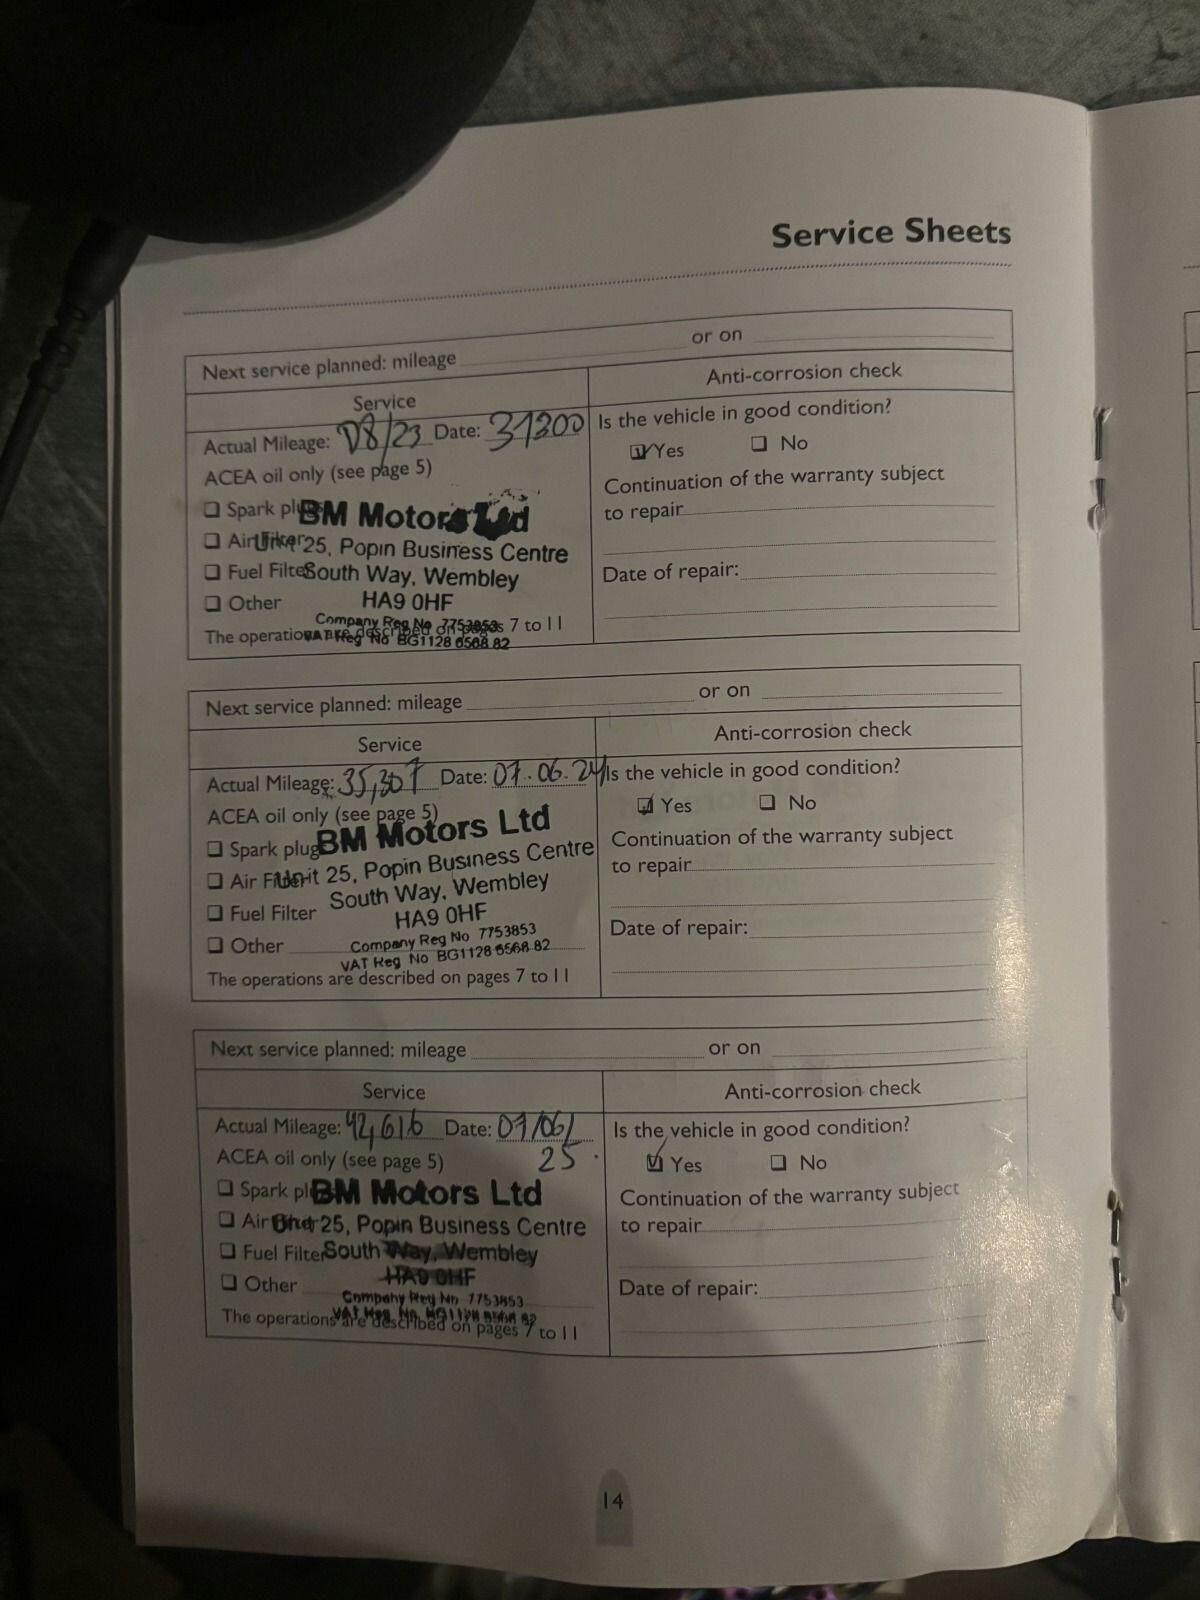 Service Sheets
Next service planned: mileage or on
Service
Anti-corrosion check
Actual Mileage: 08/23 Date: 31200
Is the vehicle in good condition?
☑ Yes ❑ No
ACEA oil only (see page 5)
Continuation of the warranty subject
to repair
❑ Spark plugs
BM Motors Ltd
❑ Air Filter
Unit 25, Popin Business Centre
❑ Fuel Filter
South Way, Wembley
Date of repair:
❑ Other
HA9 0HF
Company Reg No 7753853
The operations are described on pages 7 to 11
VAT Reg No BG1128 6568 82
Next service planned: mileage or on
Service
Anti-corrosion check
Actual Mileage: 35,307 Date: 07.06.24
Is the vehicle in good condition?
☑ Yes ❑ No
ACEA oil only (see page 5)
Continuation of the warranty subject
to repair
❑ Spark plugs
BM Motors Ltd
❑ Air Filter
Unit 25, Popin Business Centre
❑ Fuel Filter
South Way, Wembley
HA9 0HF
Date of repair:
❑ Other
Company Reg No 7753853
VAT Reg No BG1128 6568 82
The operations are described on pages 7 to 11
Next service planned: mileage or on
Service
Anti-corrosion check
Actual Mileage: 42,616 Date: 07/06/
25.
Is the vehicle in good condition?
☑ Yes ❑ No
ACEA oil only (see page 5)
Continuation of the warranty subject
to repair
❑ Spark plugs
BM Motors Ltd
❑ Air Filter
Unit 25, Popin Business Centre
❑ Fuel Filter
South Way, Wembley
HA9 0HF
Date of repair:
❑ Other
Company Reg No 7753853
VAT Reg No BG1128 6568 82
The operations are described on pages 7 to 11
14